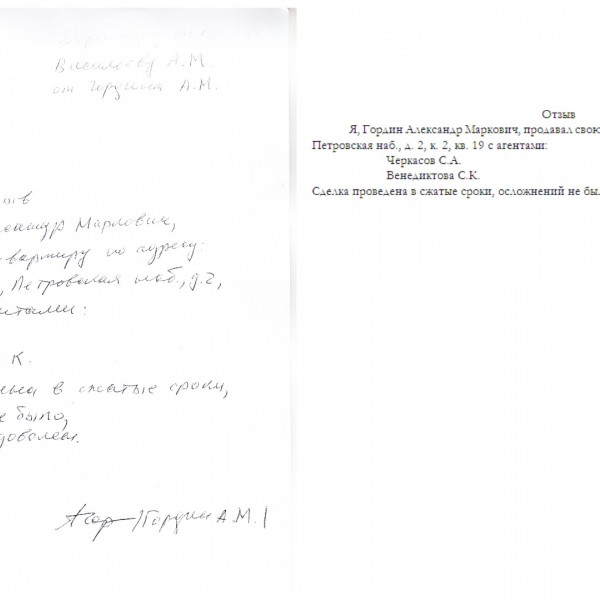 Василеву А.М.
от Гордина А.М.
ыв
ксандр Маркович,
квартиру по адресу:
, Петровская наб., д. 2,
нтами:
К.
ена в сжатые сроки,
е было,
доволен.
/Гордин А.М./
Отзыв
Я, Гордин Александр Маркович, продавал свою
Петровская наб., д. 2, к. 2, кв. 19 с агентами:
Черкасов С.А.
Венедиктова С.К.
Сделка проведена в сжатые сроки, осложнений не был